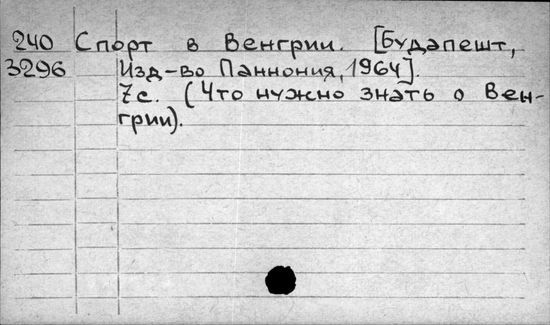 240 Спорт в Венгрии. [Будапешт,
3296 Изд-во Паннония, 1964].
7с. (Что нужно знать о Вен-
грии).